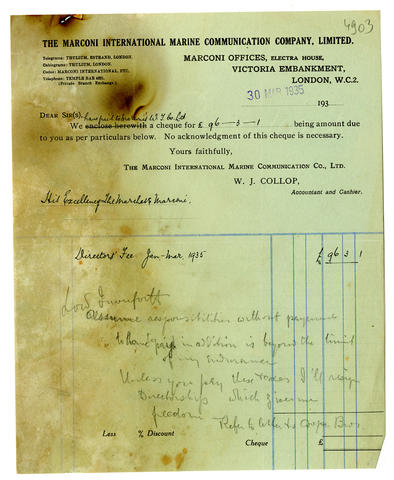 4903
THE MARCONI INTERNATIONAL MARINE COMMUNICATION COMPANY, LIMITED.
Telegrams: THULIUM, ESTRAND, LONDON.
Cablegrams: THULIUM, LONDON.
Codes: MARCONI INTERNATIONAL, ETC.
Telephone: TEMPLE BAR 4321.
(Private Branch Exchange.)
MARCONI OFFICES, ELECTRA HOUSE,
VICTORIA EMBANKMENT,
LONDON, W.C.2.
30 MAR 1935
193
DEAR SIR(S),
have paid to Marconi's W.T. Co. Ltd
We enclose herewith a cheque for £ 96-3-1 being amount due
to you as per particulars below. No acknowledgment of this cheque is necessary.
Yours faithfully,
THE MARCONI INTERNATIONAL MARINE COMMUNICATION CO., LTD.
W. J. COLLOP,
Accountant and Cashier.
His Excellency The Marchese Marconi.
Directors' Fee Jan-Mar. 1935 £ 96 3 1
Lord Inverforth
Assume responsibilities without payment
to have pay in addition is beyond the limit
of my endurance
Unless you pay these taxes I'll resign
Directorship which gives me
freedom
Refer to letter to Cooper Bros.
Less % Discount
Cheque £